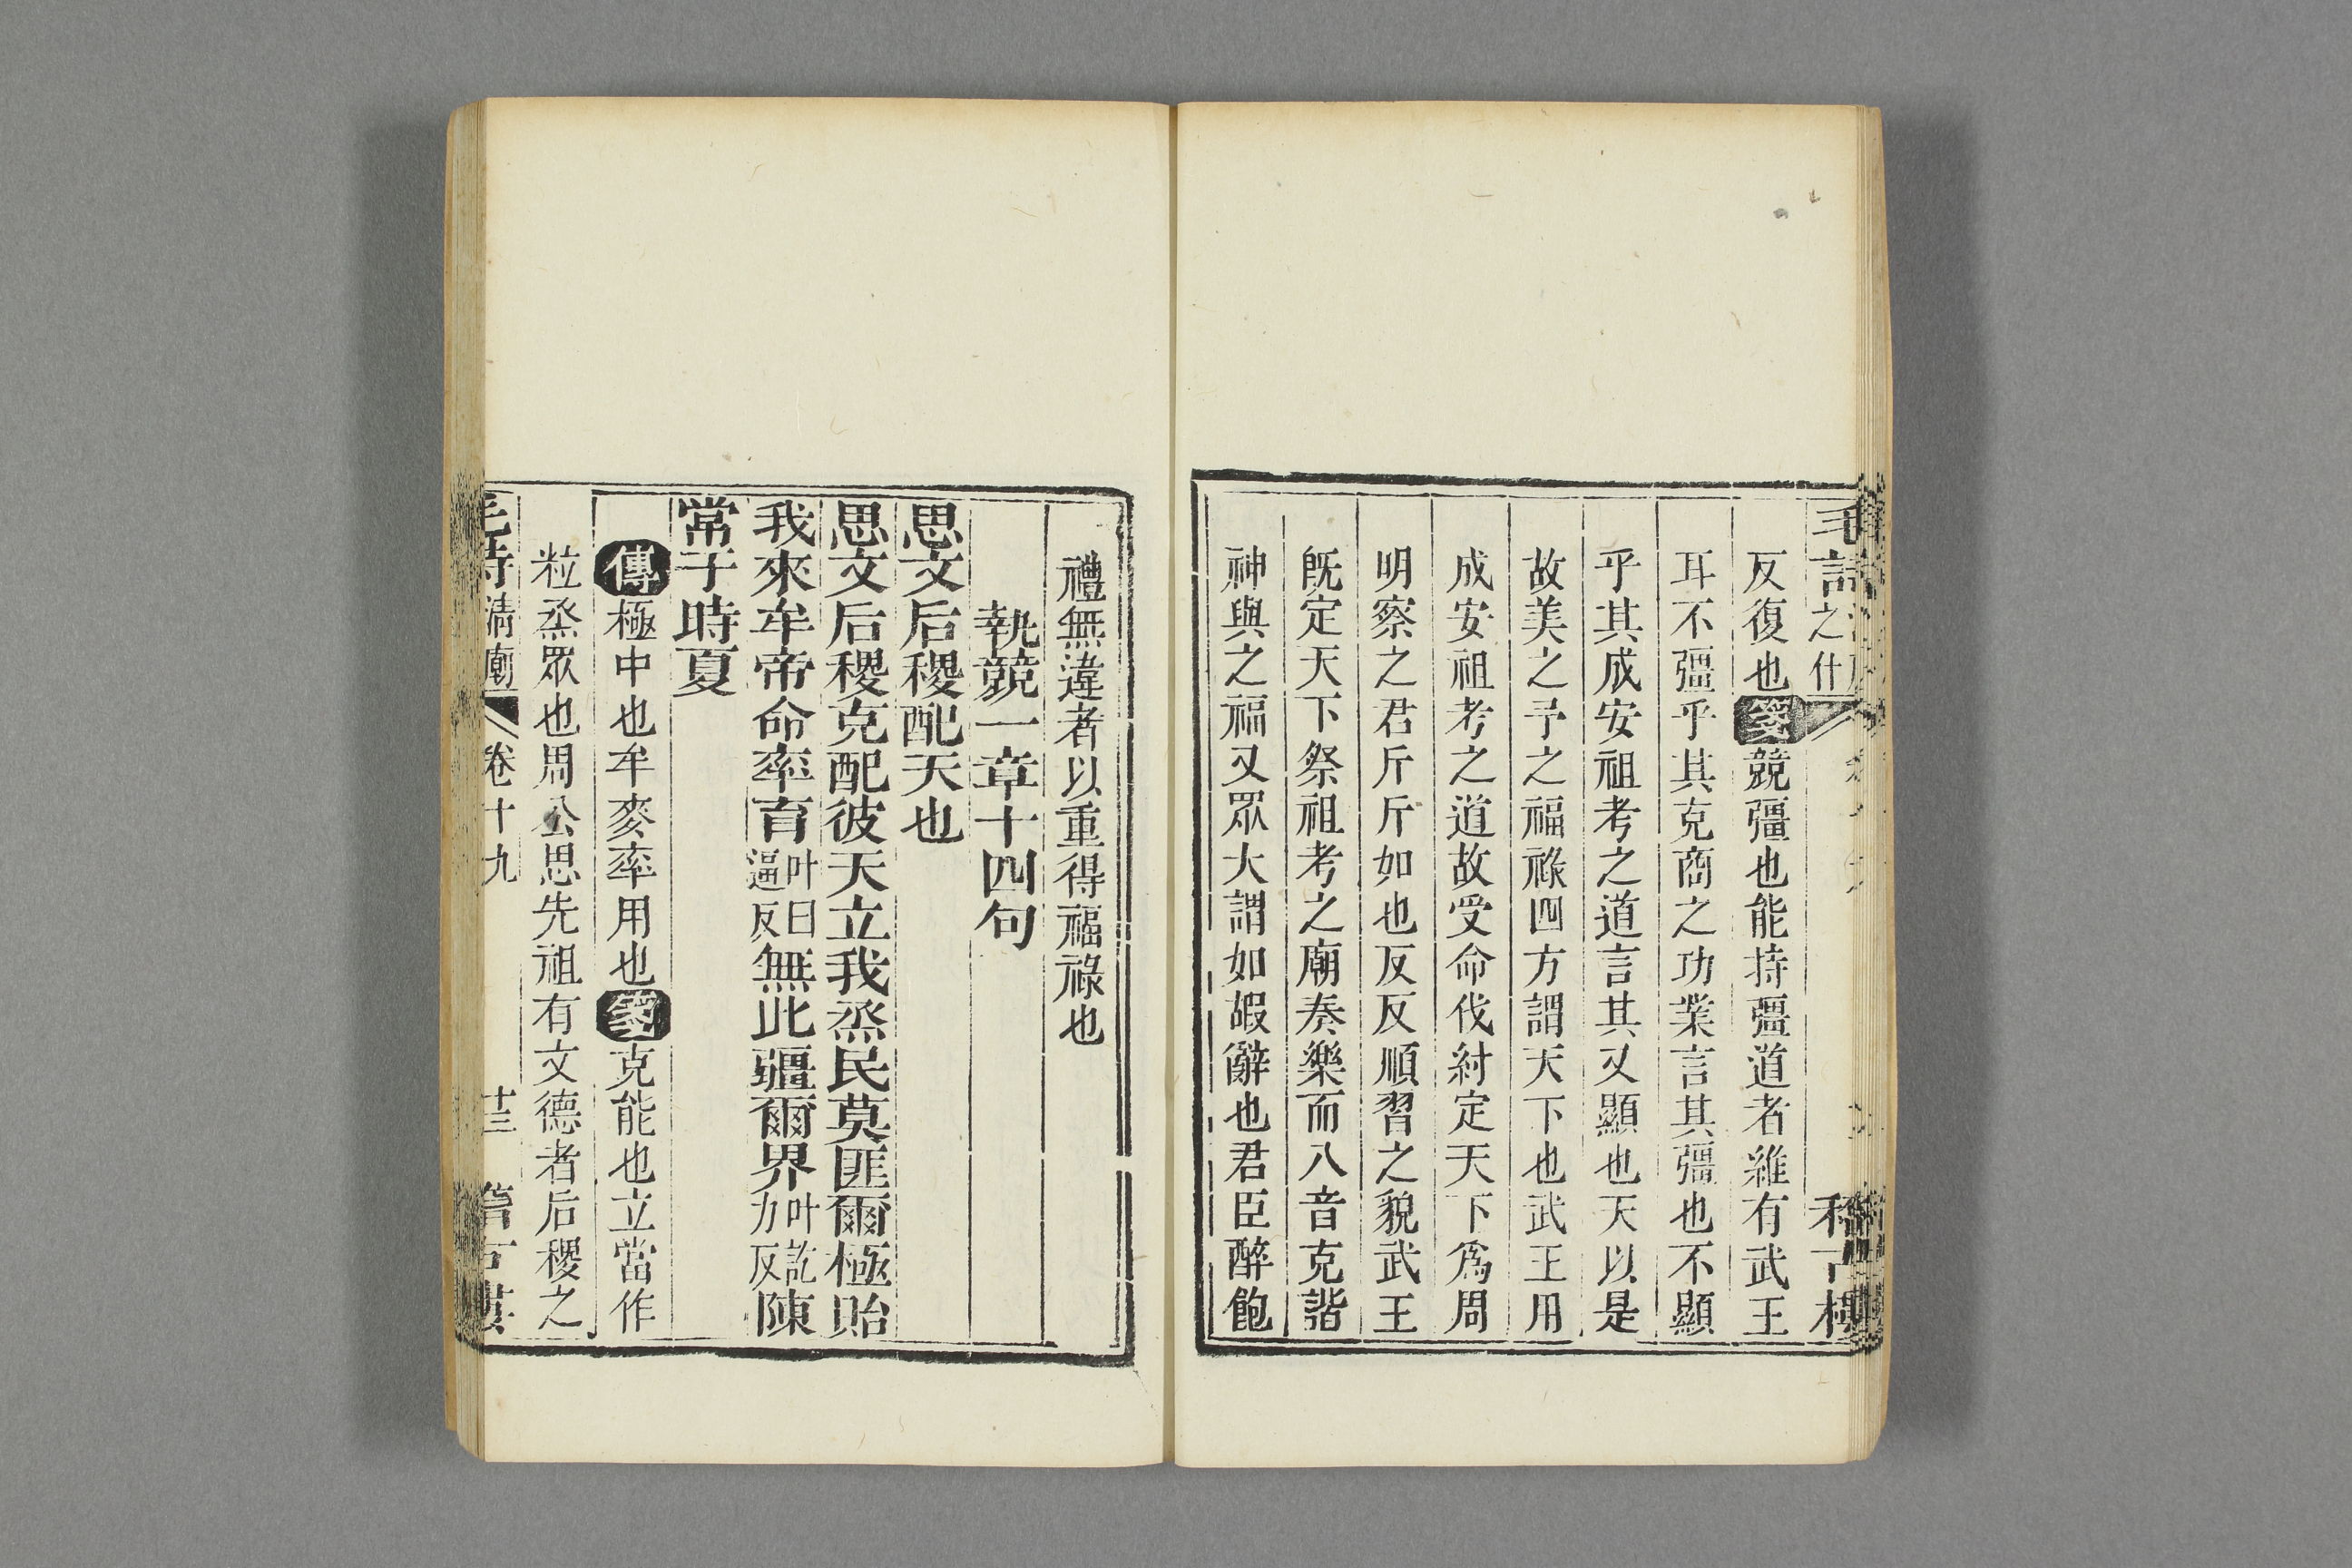 毛詩 之什
反復也箋競彊也能持彊道者維有武王
耳不彊乎其克商之功業言其彊也不顯
乎其成安祖考之道言其又顯也天以是
故美之予之福祿四方謂天下也武王用
成安祖考之道故受命伐紂定天下爲周
明察之君斤斤如也反反順習之貌武王
旣定天下祭祖考之廟奏樂而八音克諧
神與之福又眾大謂如嘏辭也君臣醉飽
禮無違者以重得福祿也
執競一章十四句
思文后稷配天也
思文后稷克配彼天立我烝民莫匪爾極貽
我來牟帝命率育叶曰逼反無此疆爾界叶訖力反陳
常于時夏
傳極中也牟麥率用也箋克能也立當作
粒烝眾也周公思先祖有文德者后稷之
毛詩 清廟 卷十九 十三